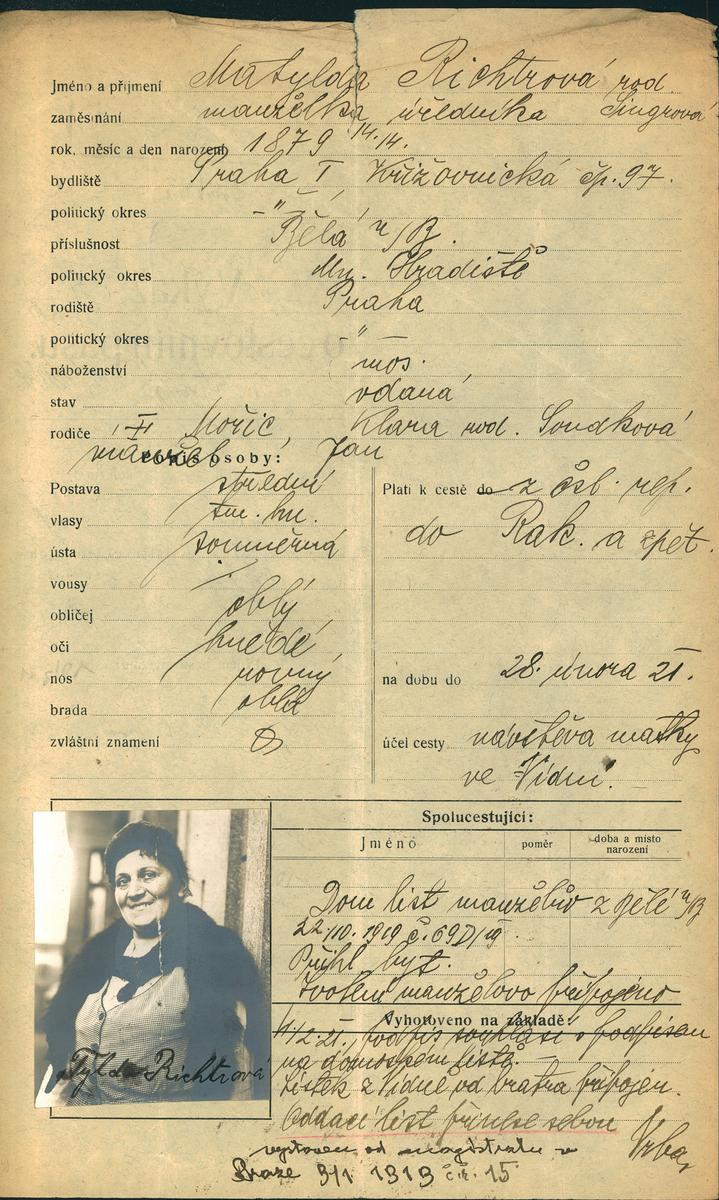 Jméno a příjmení Matylda Richtrová rod.
zaměstnání manželka úředníka Singrová
rok, měsíc a den narození 1879 14.14.
bydliště Praha I Křižovnická čp. 97.
politický okres -"-
příslušnost Bělá n/B.
politický okres Mn. Hradiště
rodiště Praha
politický okres -"-
náboženství mos.
stav vdaná
rodiče Mořic, Klara rod. Soudková
manžel Jan
Popis osoby:
Postava střední
vlasy tm. hn.
ústa souměrná
vousy /
obličej oblý
oči hnědé
nos rovný
brada oblá
zvláštní znamení
Platí k cestě do z čsl. rep.
do Rak. a zpět.
na dobu do 28. února 21.
účel cesty návštěva matky
ve Vídni.
Spolucestující:
Jméno poměr doba a místo narození
Dom. list manželův z Bělé n/B
22./10. 1919 č. 697/19.
Přihl. byt.
Svolení manželovo připojeno
Vyhotoveno na základě:
podpis souhlasí s podpisem
na domovském listě.
Lístek z Vídně od bratra připojen.
Oddací list přinese sebou
Vrba
vystaven od magistratu v
Praze 3/1 1913 č. 15
Tylda Richtrová